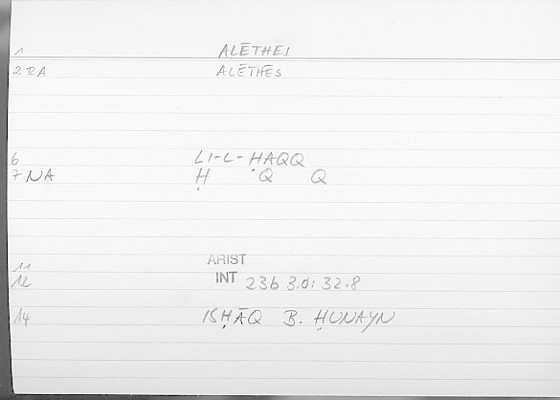 1 ALĒTHEI
2 RA ALĒTHĒS
6 LI-L-ḤAQQ
7 NA Ḥ Q Q
11 ARIST
12 INT 23b 30: 32.8
14 ISḤĀQ B. ḤUNAYN